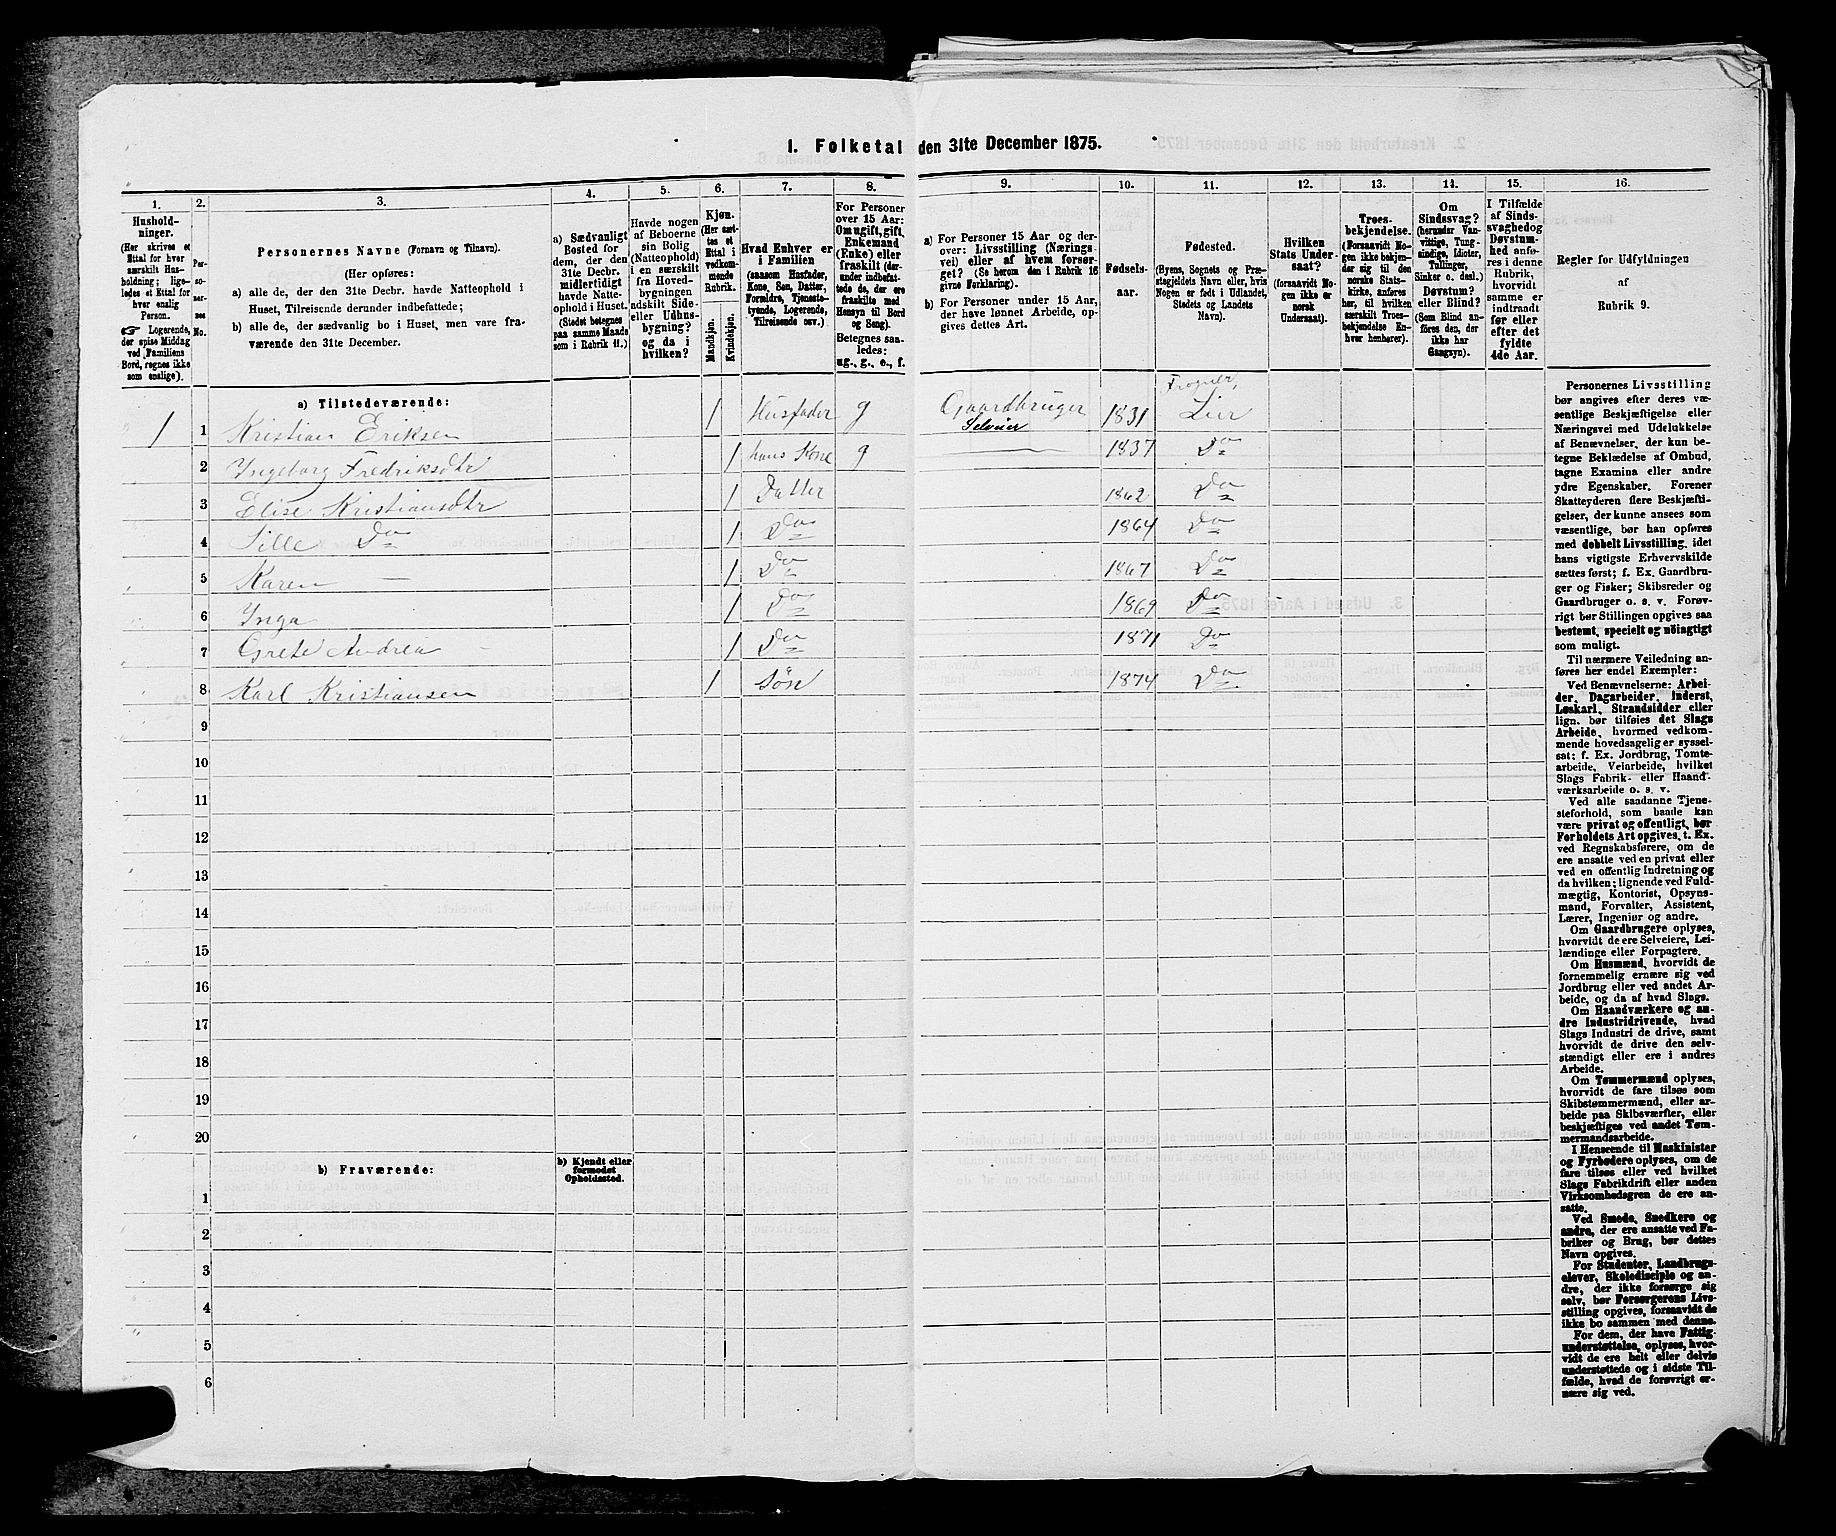 1. Folketal den 31te December 1875.
1.
2.
3.
4.
5.
6.
7.
8.
9.
10.
11.
12.
13.
14.
15.
16.
Hushold-
ninger.
(Her skrives et
Ettal for hver
særskilt Hus-
holdning; lige-
ledes et Ettal for
hver enlig
Person.
☞ Logerende,
der spise Middag
ved Familiens
Bord, regnes ikke
som enslige).
Per-
so-
ner-
nes
No.
Personernes Navne (Fornavn og Tilnavn).
(Her opføres:
a) alle de, der den 31te Decbr. havde Natteophold i
Huset, Tilreisende derunder indbefattede;
b) alle de, der sædvanlig bo i Huset, men vare fra-
værende den 31te December.
a) Sædvanligt
Bosted for
dem, der den
31te Decbr.
midlertidigt
havde Natte-
ophold i Huset.
(Stedet betegnes
paa samme Maade
som i Rubrik 11.)
Havde nogen
af Beboerne
sin Bolig
(Natteophold)
i en særskilt
fra Hoved-
bygningen
adskilt Side-
eller Udhus-
bygning?
og da i
hvilken?
Kjøn.
(Her sæt-
tes et
Ettal i
vedkom-
mende
Rubrik.
Mandkjøn.
Kvindekjøn.
Hvad Enhver er
i Familien
(saasom Husfader,
Kone, Søn, Datter,
Forældre, Tjeneste-
tyende, Logerende,
Tilreisende osv.)
For Personer
over 15 Aar:
Om ugift, gift,
Enkemand
(Enke) eller
fraskilt (der-
under indbefat-
tede de, der ere
fraskilte med
Hensyn til Bord
og Seng).
Betegnes saa-
ledes:
ug., g., e., f.
a) For Personer 15 Aar og der-
over: Livsstilling (Nærings-
vei) eller af hvem forsør-
get? (Se herom den i Rubrik 16
givne Forklaring).
b) For Personer under 15 Aar,
der have lønnet Arbeide, op-
gives dettes Art.
Fødsels-
aar.
Fødested.
(Byens, Sognets og Præ-
stegjeldets Navn eller, hvis
Nogen er født i Udlandet,
Stedets og Landets
Navn).
Hvilken
Stats Under-
saat?
(forsaavidt No-
gen ikke er
norsk
Undersaat).
Troes-
bekjendelse.
(Forsaavidt No-
gen ikke bekjen-
der sig til den
norske Stats-
kirke, anføres
her, til hvilken
særskilt Troes-
bekjendelse En-
hver henhører).
Om
Sindssvag?
(herunder Van-
vittige, Tung-
sindige, Idioter,
Tullinger,
Sinker o. desl.)
Døvstum?
eller Blind?
(Som Blind an-
føres den, der
ikke har
Gangsyn).
I Tilfælde
af Sinds-
svaghed og
Døvstum-
hed anfø-
res i denne
Rubrik,
hvorvidt
samme er
indtraadt
før eller
efter det
fyldte
4de Aar.
Regler for Udfyldningen
af
Rubrik 9.
a) Tilstedeværende:
1 1 Kristian Eriksen 1 Husfader g Gaardbruger Selveier 1831 Frogner, Lier
2 Ingeborg Fredriksdtr 1 hans Kone g — 1837 Do
3 Elise Kristiansdtr 1 Datter 1862 Do
4 Sille Do 1 Do 1864 Do
5 Karen — 1 Do 1867 Do
6 Inga 1 Do 1869 Do
7 Grete Andrea - 1 Do 1871 Do
8 Karl Kristiansen 1 Søn 1874 Do
9
10
11
12
13
14
15
16
17
18
19
20
b) Fraværende:
b) Kjendt eller
formodet
Opholdssted.
1
2
3
4
5
6
Personernes Livsstilling
bør angives efter deres væ-
sentlige Beskjæftigelse eller
Næringsvei med Udelukkelse
af Benævnelser, der kun be-
tegne Beklædelse af Ombud,
tagne Examina eller andre
ydre Egenskaber. Forener
Skatteyderen flere Beskjæfti-
gelser, der kunne ansees som
væsentlige, bør han opføres
med dobbelt Livsstilling, idet
hans vigtigste Erhvervskilde
sættes først; f. Ex. Gaardbru-
ger og Fisker; Skibsreder og
Gaardbruger o. s. v. Forøv-
rigt bør Stillingen opgives saa
bestemt, specielt og nøiagtigt
som muligt.
Til nærmere Veiledning an-
føres her endel Exempler:
Ved Benævnelserne: Arbei-
der, Dagarbeider, Inderst,
Løskarl, Strandsidder eller
lign. bør tilføies det Slags
Arbeide, hvormed vedkom-
mende hovedsagelig er syssel-
sat; f. Ex. Jordbrug, Tomte-
arbeide, Veiarbeide, hvilket
Slags Fabrik- eller Haand-
værksarbeide o. s. v.
Ved alle saadanne Tjene-
steforhold, som baade kan
være privat og offentligt, bør
Forholdets Art opgives, t. Ex.
ved Regnskabsførere, om de
ere ansatte ved en privat eller
ved en offentlig Indretning og
da hvilken; lignende ved Fuld-
mægtig, Kontorist, Opsyns-
mand, Forvalter, Assistent,
Lærer, Ingeniør og andre.
Om Gaardbrugere oplyses,
hvorvidt de ere Selveiere, Lei-
lændinge eller Forpagtere.
Om Husmænd, hvorvidt de
fornemmelig ernære sig ved
Jordbrug eller ved andet Ar-
beide, og da af hvad Slags.
Om Haandværkere og an-
dre Industridrivende, hvad
Slags Industri de drive, samt
hvorvidt de drive den selv-
stændigt eller ere i andres
Arbeide.
Om Tømmermænd oplyses,
hvorvidt de fare tilsøs som
Skibstømmermænd, eller ar-
beide paa Skibsværfter, eller
beskjæftiges ved andet Tøm-
mermandsarbeide.
I Henseende til Maskinister
og Fyrbødere oplyses, om de
fare tilsøs eller ved hvilket
Slags Fabrikdrift eller anden
Virksomhedsgren de ere an-
satte.
Ved Smede, Snedkere og
andre, der ere ansatte ved Fa-
briker og Brug, bør dettes
Navn opgives.
For Studenter, Landbrugs-
elever, Skoledisciple og an-
dre, der ikke forsørge sig
selv, bør Forsørgerens Livs-
stilling opgives, forsaavidt de
ikke bo sammen med denne.
For dem, der have Fattig-
understøttelse, oplyses, hvor-
vidt de ere helt eller delvis
understøttede og i sidste Til-
fælde, hvad de forøvrigt er-
nære sig ved.